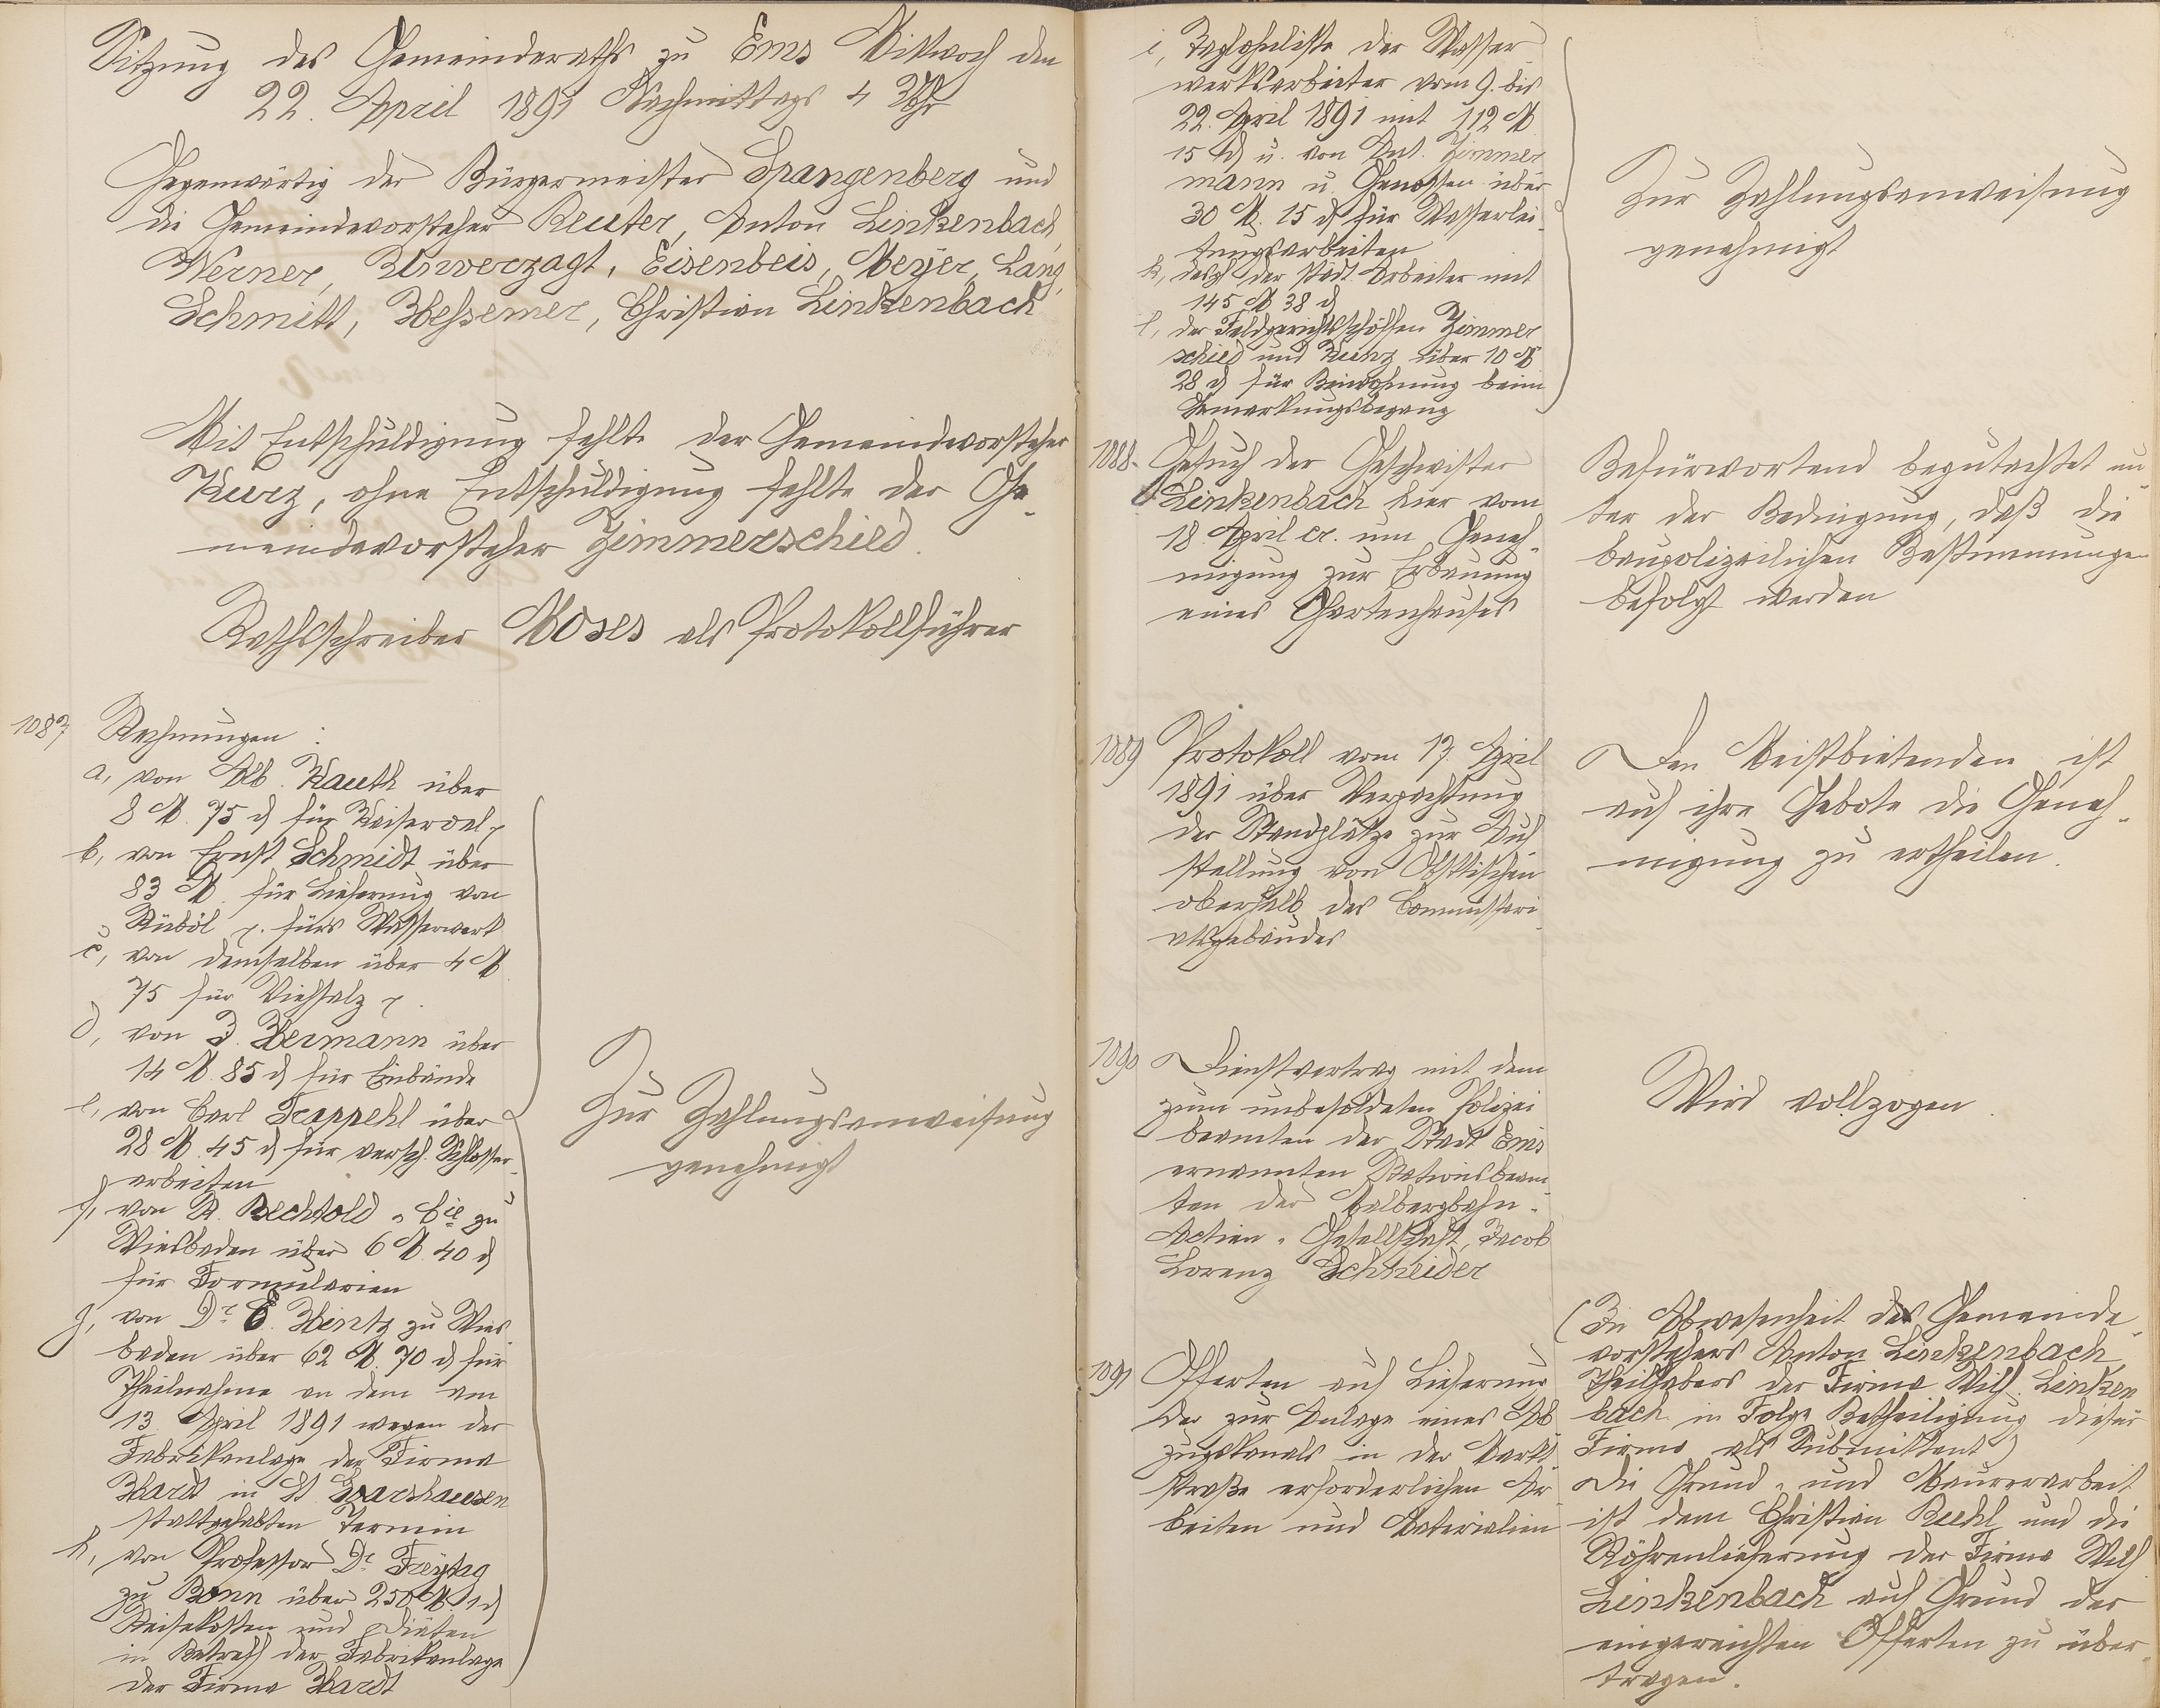 Sitzung des Gemeinderaths zu Ems Mittwoch den
22. April 1891 Nachmittags 4 Uhr
Gegenwärtig der Bürgermeister Spangenberg und
die Gemeindevorsteher Reuter, Anton Linkenbach,
Werner, Unverzagt, Eisenbeis, Meyer, Lang,
Schmitt, Hessemer, Christian Linkenbach
Mit Entschuldigung fehlte der Gemeindevorsteher
Kurz, ohne Entschuldigung fehlte der Ge-
meindevorsteher Zimmerschied.
Rathsschreiber Moses als Protokollführer
1087, Rechnungen:
a, von Alb. Kauth über
8 M. 75 d für Kaiseroel p
b, von Ernst Schmidt über
83 M. für Lieferung von
Rüböl p. fürs Wasserwerk
c, von demselben über 4 M
75 für Viehsalz p.
d, von J. Hermann über
14 M. 85 d für Einbände
e, von Carl Trappehl über
28 M. 45 d für versch. Schlosser-
arbeiten
f, von R. Bechtold & Cie zu
Wiesbaden über 6 M. 40 d
für Formularien
g, von Dr. E. Hintz zu Wies-
baden über 62 M. 70 d für
Theilnahme an dem am
13. April 1891 wegen der
Fabrikanlage der Firma
Hardt in St. Goarshausen
stattgehabten Termin
h, von Professor Dr. Freytag
zu Bonn über 250 M. 1 d
Reisekosten und Diäten
in Betreff der Fabrikanlage
der Firma Hardt
Zur Zahlungsanweisung
genehmigt
i, Taglohnliste der Wasser-
werksarbeiter vom 9. bis
22. April 1891 mit 112 M
15 d u. von Ant. Zimmer
mann u. Genossen über
30 M. 15 d für Wasserlei-
tungsarbeiten
k, desgl. der städt. Arbeiter mit
145 M 38 d
l, der Feldgerichtsschöffen Zimmer
schied und Kunz über 10 M
28 d für Beiwohnung beim
Gemarkungsbegang
Zur Zahlungsanweisung
genehmigt
1088. Gesuch der Geschwister
Linkenbach hier vom
18. April cr. um Geneh-
migung zur Erbauung
eines Gartenhauses
Befürwortend begutachtet un-
ter der Bedingung, daß die
baupolizeilichen Bestimmungen
befolgt werden
1089 Protokoll vom 17. April
1891 über Verpachtung
der Standplätze zur Auf
stellung von Obsttischen
oberhalb des Commissari-
atsgebäudes
Den Meistbietenden ist
auf ihre Gebote die Geneh-
migung zu ertheilen.
1090 Dienstvertrag mit dem
zum unbesoldeten Polizei
beamten der Stadt Ems
ernannten Stationsbeam-
ten der Malbergbahn-
Actien-Gesellschaft, Jacob
Lorenz Schneider
Wird vollzogen.
1091 Offerten auf Lieferung
der zur Anlage eines Ab-
zugskanals in der Markt-
straße erforderlichen Ar-
beiten und Materialien
(In Abwesenheit des Gemeinde-
vorstehers Anton Linkenbach
Theilhabers der Firma Wilh. Linken
bach in Folge Betheiligung dieser
Firma als Submittent)
Die Grund- und Maurerarbeit
ist dem Christian Rückl und die
Röhrenlieferung der Firma Wilh
Linkenbach auf Grund der
eingereichten Offerten zu über-
tragen.